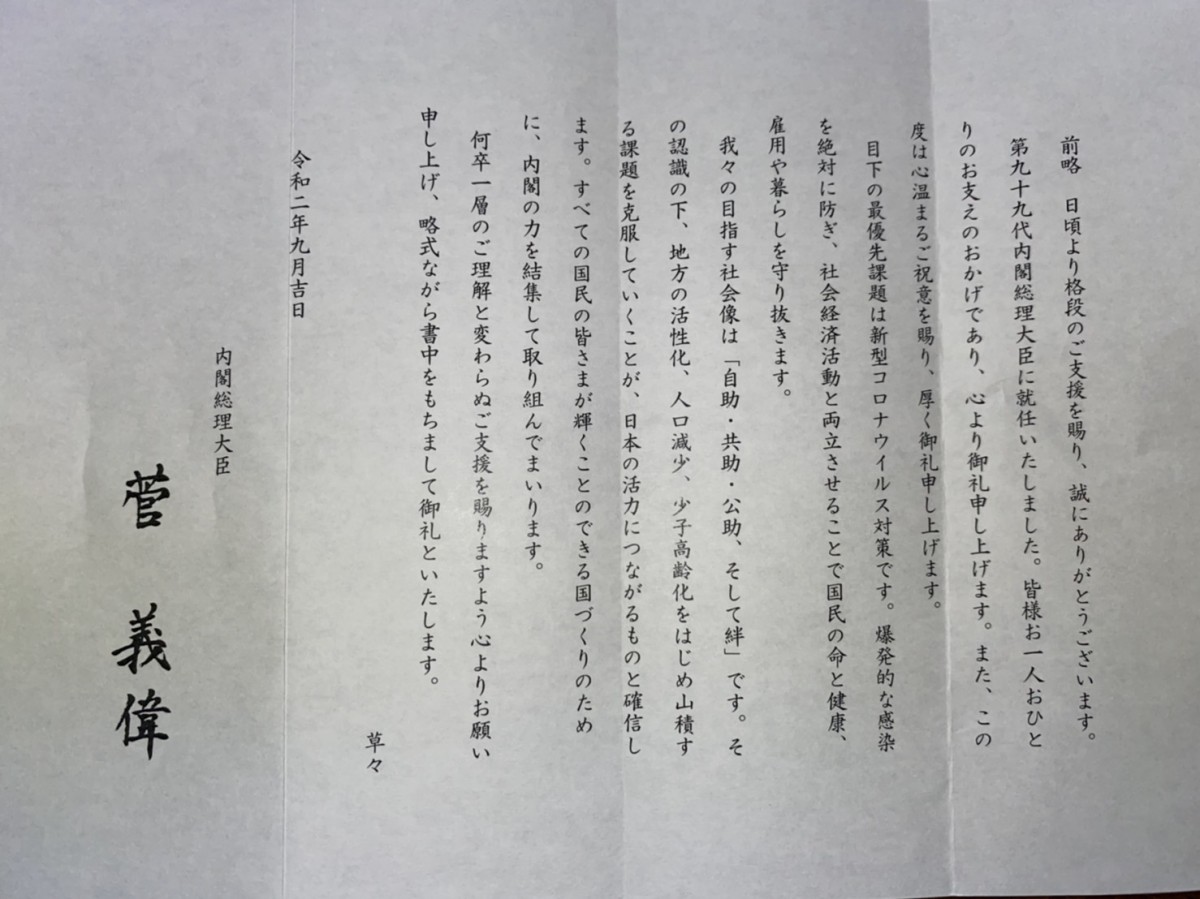 前略　日頃より格段のご支援を賜り、誠にありがとうございます。
第九十九代内閣総理大臣に就任いたしました。皆様お一人おひと
りのお支えのおかげであり、心より御礼申し上げます。また、この
度は心温まるご祝意を賜り、厚く御礼申し上げます。
目下の最優先課題は新型コロナウイルス対策です。爆発的な感染
を絶対に防ぎ、社会経済活動と両立させることで国民の命と健康、
雇用や暮らしを守り抜きます。
我々の目指す社会像は「自助・共助・公助、そして絆」です。そ
の認識の下、地方の活性化、人口減少、少子高齢化をはじめ山積す
る課題を克服していくことが、日本の活力につながるものと確信し
ます。すべての国民の皆さまが輝くことのできる国づくりのため
に、内閣の力を結集して取り組んでまいります。
何卒一層のご理解と変わらぬご支援を賜りますよう心よりお願い
申し上げ、略式ながら書中をもちまして御礼といたします。
草々
令和二年九月吉日
内閣総理大臣
菅　義偉